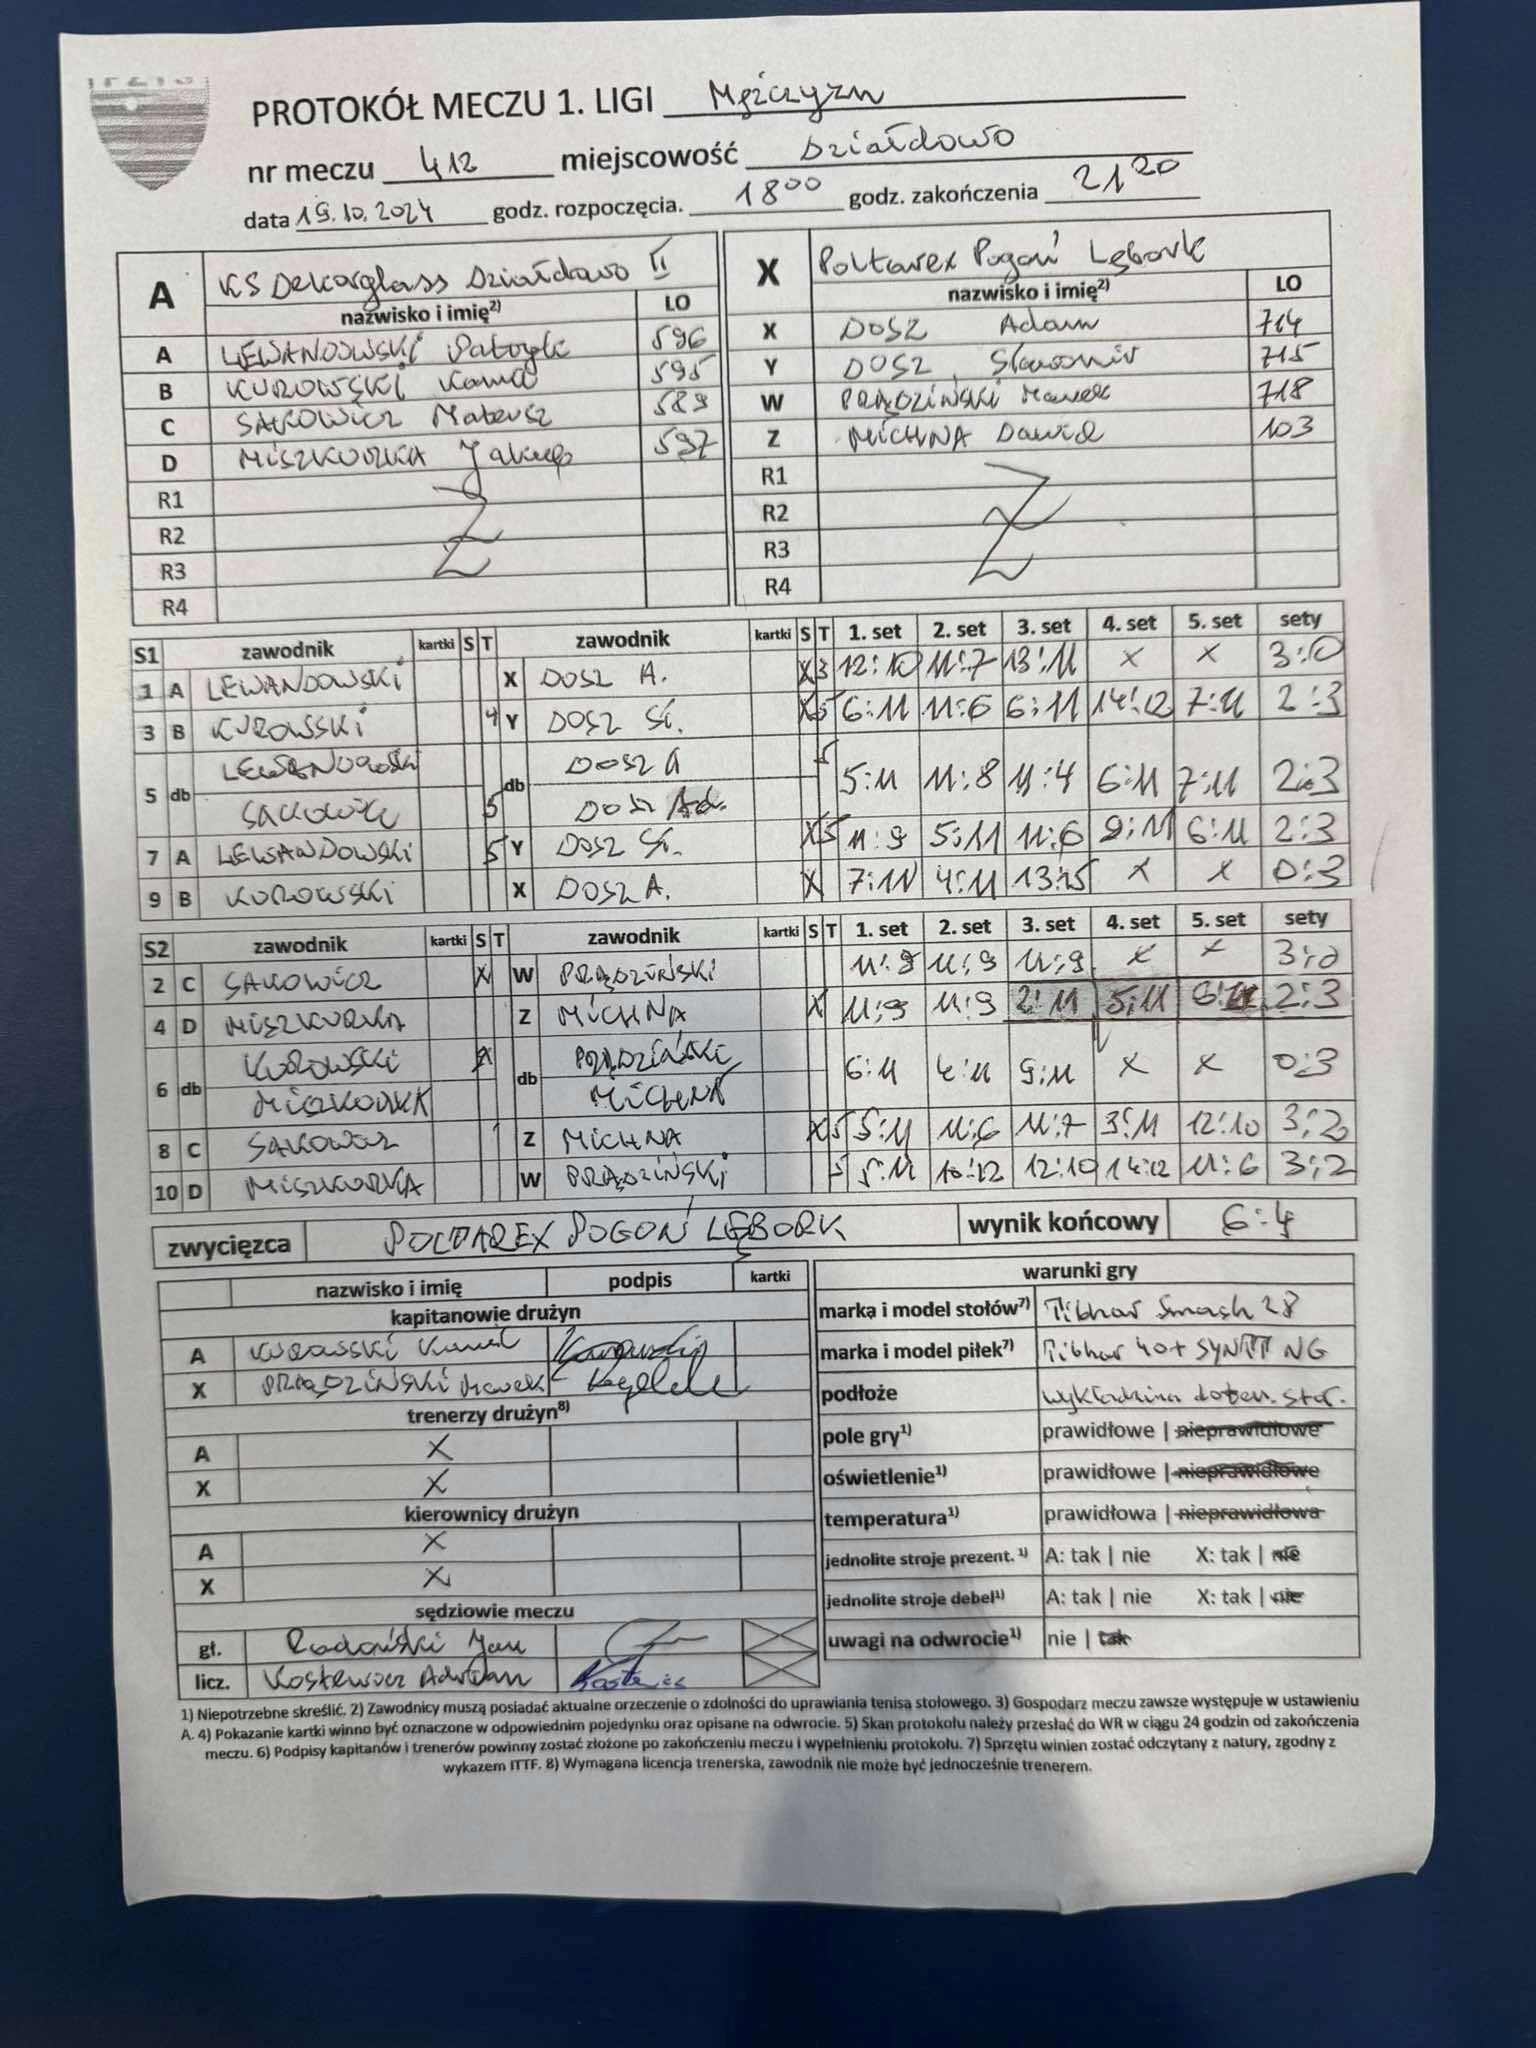 PROTOKÓŁ MECZU 1. LIGI Mężczyzn
nr meczu 412 miejscowość Działdowo
data 19.10.2024 godz. rozpoczęcia. 18⁰⁰ godz. zakończenia 21²⁰
A KS Dekorglass Działdowo II X Poltarex Pogoń Lębork
nazwisko i imię²⁾ LO nazwisko i imię²⁾ LO
A LEWANDOWSKI Patryk 596 X DOSZ Adam 714
B KUROWSKI Kamil 595 Y DOSZ Sławomir 715
C SAKOWICZ Mateusz 589 W PRĄDZIŃSKI Marek 718
D MISZKURKA Jakub 597 Z MICHNA Dawid 103
R1 R1
R2 R2
R3 R3
R4 R4
S1 zawodnik kartki S T zawodnik kartki S T 1. set 2. set 3. set 4. set 5. set sety
1 A LEWANDOWSKI X DOSZ A. X 3 12:10 11:7 13:11 X X 3:0
3 B KUROWSKI 4 Y DOSZ Sł. X 5 6:11 11:6 6:11 14:12 7:11 2:3
5 db LEWANDOWSKI db DOSZ A 5 5:11 11:8 11:4 6:11 7:11 2:3
SAKOWICZ 5 DOSZ
7 A LEWANDOWSKI 5 Y DOSZ Sł. X 5 11:9 5:11 11:6 9:11 6:11 2:3
9 B KUROWSKI X DOSZ A. X 7:11 4:11 13:15 X X 0:3
S2 zawodnik kartki S T zawodnik kartki S T 1. set 2. set 3. set 4. set 5. set sety
2 C SAKOWICZ X W PRĄDZIŃSKI 11:9 11:9 11:9 X X 3:0
4 D MISZKURKA Z MICHNA X 11:9 11:9 2:11 5:11 6:11 2:3
6 db KUROWSKI X db PRĄDZIŃSKI 6:11 4:11 9:11 X X 0:3
MISZKURKA MICHNA
8 C SAKOWICZ Z MICHNA X 5 5:11 11:6 11:7 3:11 12:10 3:2
10 D MISZKURKA W PRĄDZIŃSKI 5 5:11 10:12 12:10 14:12 11:6 3:2
zwycięzca POLTAREX POGOŃ LĘBORK wynik końcowy 6:4
nazwisko i imię podpis kartki warunki gry
kapitanowie drużyn marka i model stołów⁷⁾ Tibhar Smash 28
A KUROWSKI Kamil marka i model piłek⁷⁾ Tibhar 40+ SYNTT NG
X PRĄDZIŃSKI Marek podłoże wykładzina
trenerzy drużyn⁸⁾ pole gry¹⁾ prawidłowe | nieprawidłowe
A X oświetlenie¹⁾ prawidłowe | nieprawidłowe
X X temperatura¹⁾ prawidłowa | nieprawidłowa
kierownicy drużyn
A X jednolite stroje prezent. ¹⁾ A: tak | nie X: tak | nie
X X jednolite stroje debel¹⁾ A: tak | nie X: tak | nie
sędziowie meczu uwagi na odwrocie¹⁾ nie | tak
gł. Jan
licz. Kostewicz Adrian
1) Niepotrzebne skreślić. 2) Zawodnicy muszą posiadać aktualne orzeczenie o zdolności do uprawiania tenisa stołowego. 3) Gospodarz meczu zawsze występuje w ustawieniu
A. 4) Pokazanie kartki winno być oznaczone w odpowiednim pojedynku oraz opisane na odwrocie. 5) Skan protokołu należy przesłać do WR w ciągu 24 godzin od zakończenia
meczu. 6) Podpisy kapitanów i trenerów powinny zostać złożone po zakończeniu meczu i wypełnieniu protokołu. 7) Sprzętu winien zostać odczytany z natury, zgodny z
wykazem ITTF. 8) Wymagana licencja trenerska, zawodnik nie może być jednocześnie trenerem.